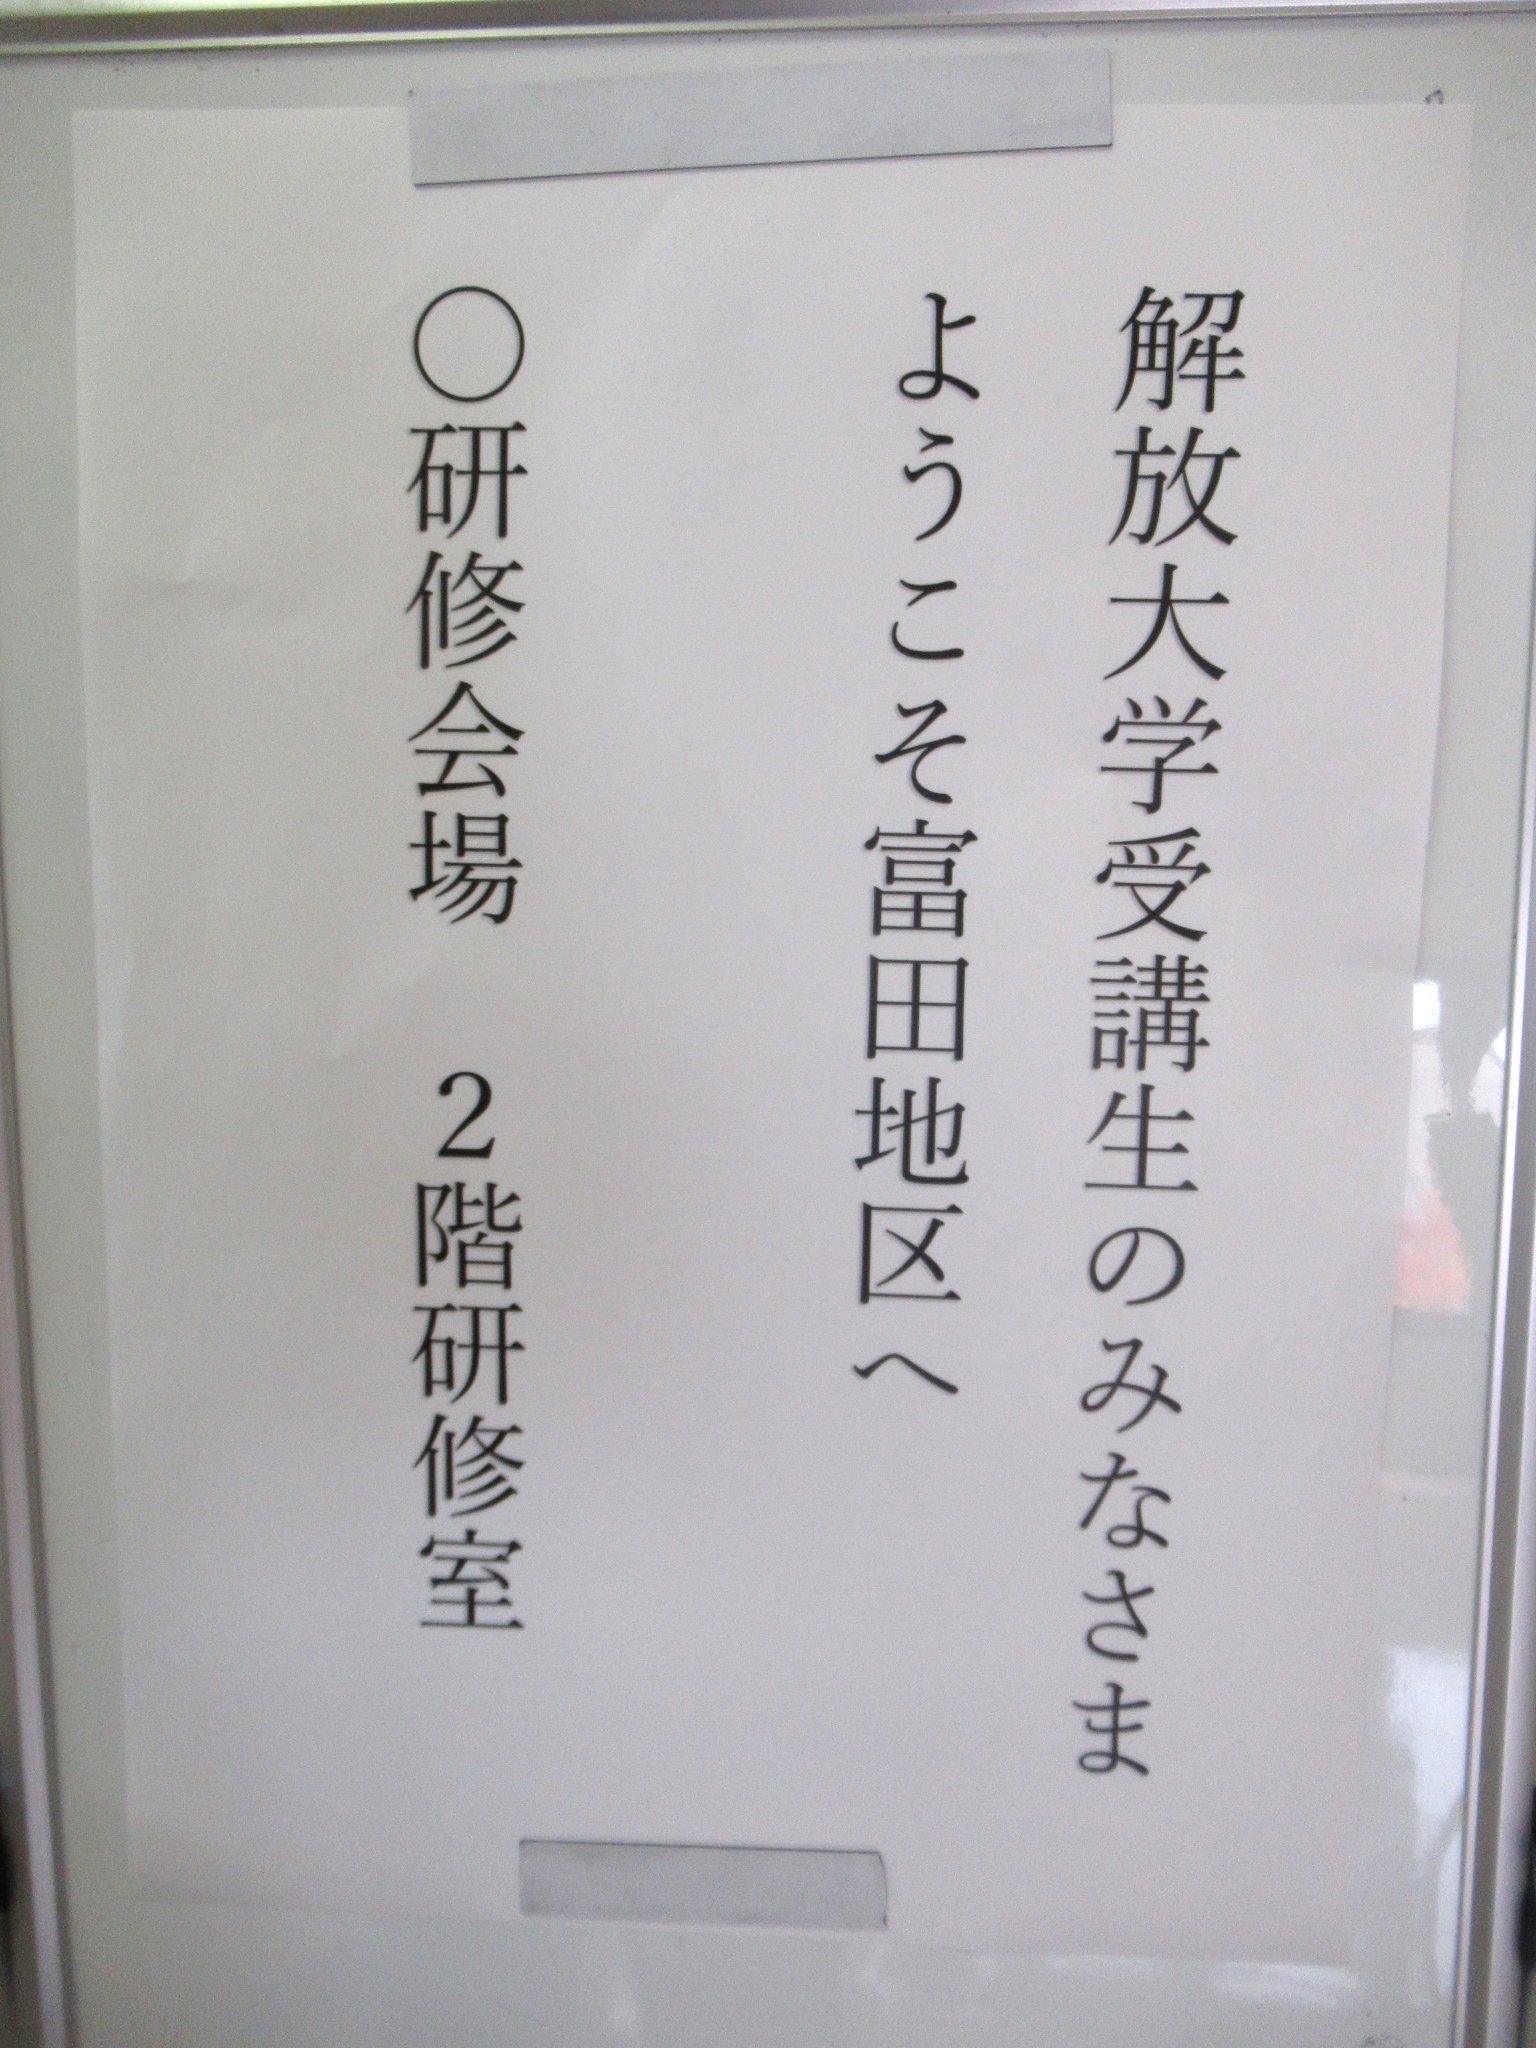 解放大学受講生のみなさま
ようこそ富田地区へ
〇研修会場　2階研修室